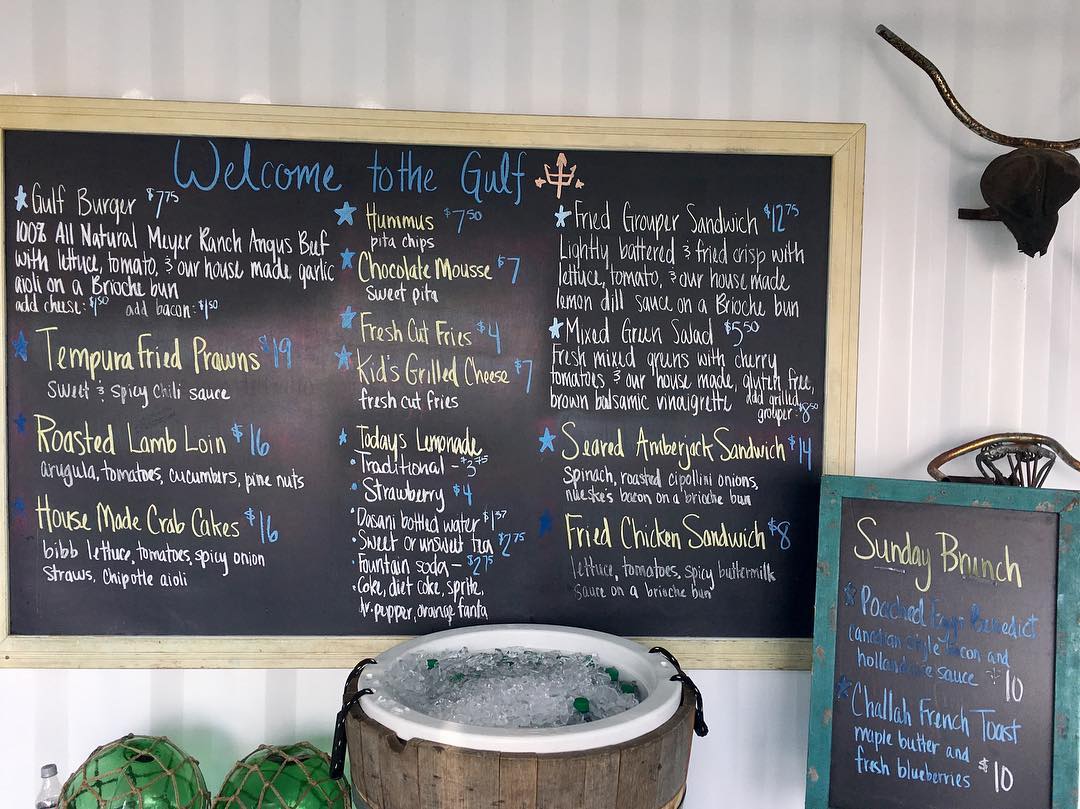 Welcome to the Gulf
Gulf Burger $7.75
100% All Natural Meyer Ranch Angus Beef
with lettuce, tomato, & our house made garlic
aioli on a Brioche bun
add cheese: $1.50 add bacon: $1.50
Tempura Fried Prawns $19
Sweet & Spicy Chili sauce
Roasted Lamb Loin $16
arugula, tomatoes, cucumbers, pine nuts
House Made Crab Cakes $16
bibb lettuce, tomatoes, spicy onion
straws, Chipotle aioli
Hummus $7.50
pita chips
Chocolate Mousse $7
Sweet pita
Fresh Cut Fries $4
Kid's Grilled Cheese $7
fresh cut fries
Todays Lemonade
Traditional - $3.75
Strawberry $4
Dasani bottled water $1.37
Sweet or unsweet tea $2.75
Fountain soda - $2.75
Coke, diet coke, sprite,
dr. pepper, orange fanta
Fried Grouper Sandwich $12.75
Lightly battered & fried crisp with
lettuce, tomato, & our house made
lemon dill sauce on a Brioche bun
Mixed Green Salad $5.50
Fresh mixed greens with cherry
tomatoes & our house made, gluten free,
brown balsamic vinaigrette add grilled
grouper: $8.50
Seared Amberjack Sandwich $14
Spinach, roasted cipollini onions,
nueske's bacon on a brioche bun
Fried Chicken Sandwich $8
lettuce, tomatoes, spicy buttermilk
sauce on a brioche bun
Sunday Brunch
Poached Eggs Benedict
Canadian style bacon and
hollandaise sauce $10
Challah French Toast
maple butter and
fresh blueberries $10